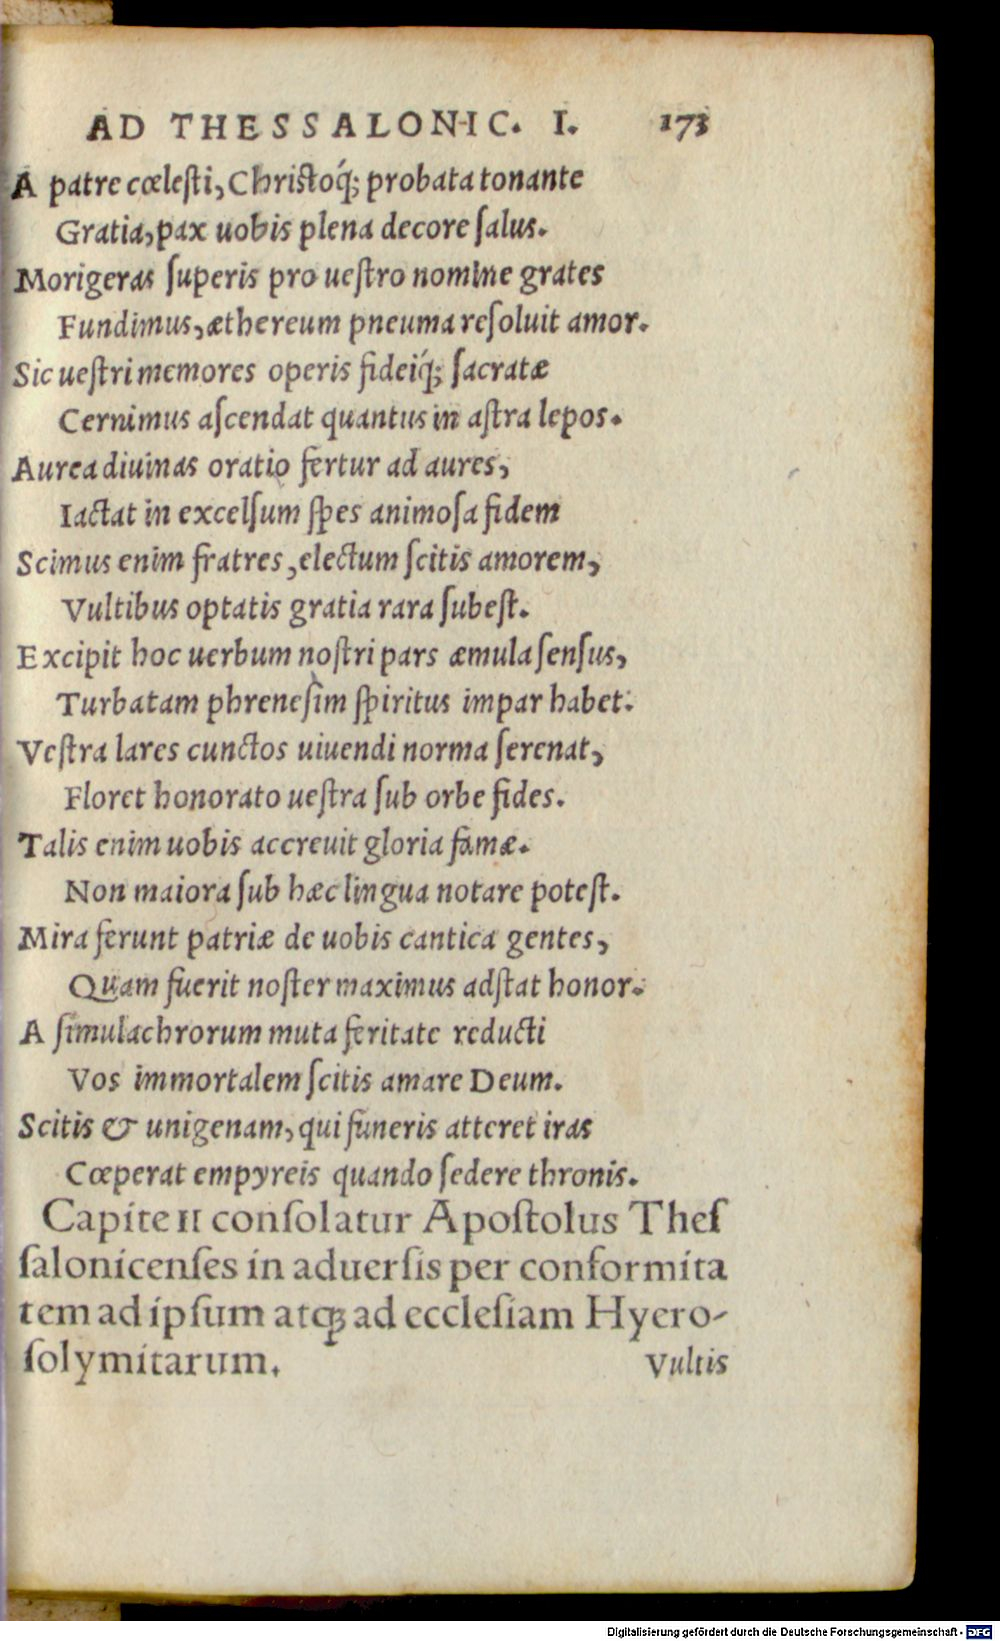 AD THESSALONIC. I. 173
A patre cœleſti, Chriſtoq́; probata tonante
Gratia, pax uobis plena decore ſalus.
Morigeras ſuperis pro ueſtro nomine grates
Fundimus, æthereum pneuma reſoluit amor.
Sic ueſtri memores operis fideiq́; ſacratæ
Cernimus aſcendat quantus in aſtra lepos.
Aurea diuinas oratio fertur ad aures,
Iactat in excelſum ſpes animoſa fidem
Scimus enim fratres, electum ſcitis amorem,
Vultibus optatis gratia rara ſubeſt.
Excipit hoc uerbum noſtri pars æmula ſenſus,
Turbatam phreneſim ſpiritus impar habet.
Veſtra lares cunctos uiuendi norma ſerenat,
Floret honorato ueſtra ſub orbe fides.
Talis enim uobis accreuit gloria famæ.
Non maiora ſub hæc lingua notare poteſt.
Mira ferunt patriæ de uobis cantica gentes,
Quam fuerit noſter maximus adſtat honor.
A ſimulachrorum muta feritate reducti
Vos immortalem ſcitis amare Deum.
Scitis & unigenam, qui funeris atteret iras
Cœperat empyreis quando ſedere thronis.
Capite II conſolatur Apoſtolus Theſ
ſalonicenſes in aduerſis per conformita
tem ad ipſum atq; ad eccleſiam Hyero-
ſolymitarum. Vultis
Digitalisierung gefördert durch die Deutsche Forschungsgemeinschaft - DFG